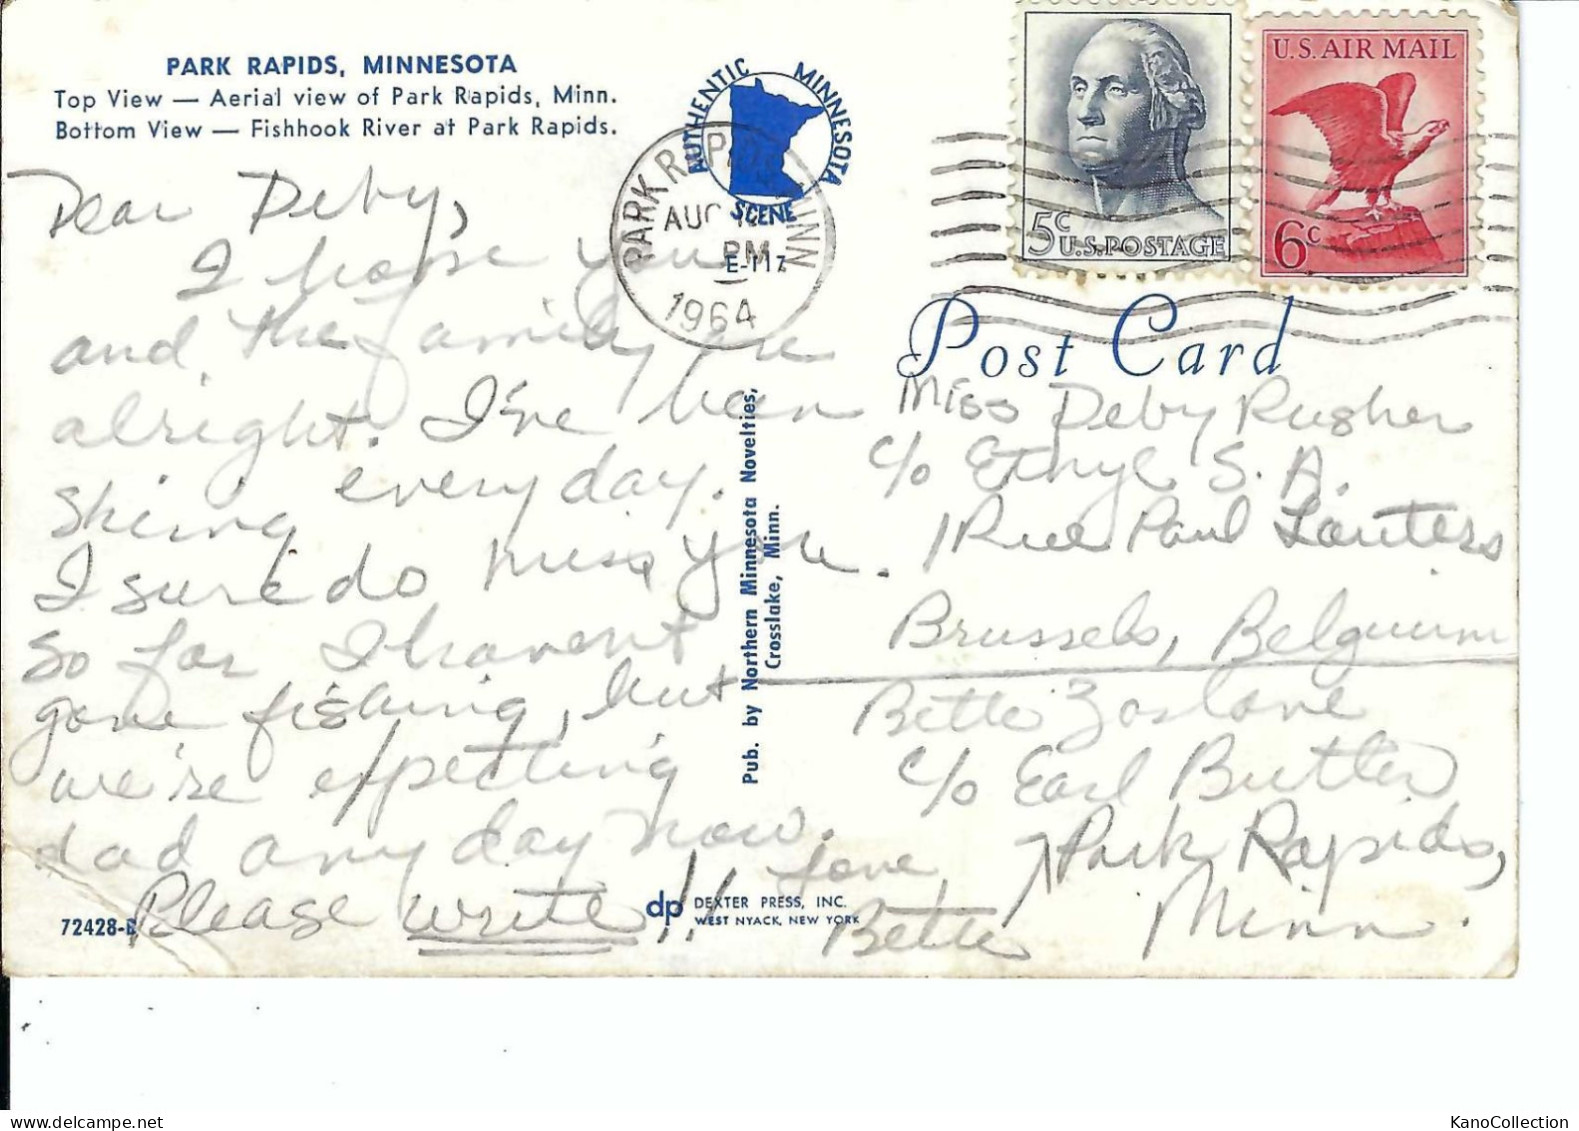 PARK RAPIDS, MINNESOTA
Top View — Aerial view of Park Rapids, Minn.
Bottom View — Fishhook River at Park Rapids.
AUTHENTIC MINNESOTA
SCENE
PARK RAPIDS MINN
AUG
PM
1964
U.S. AIR MAIL
5c U.S. POSTAGE
6c
Post Card
Dear Deby,
I hope you
and the family are
alright. I've been
skiing everyday.
I sure do miss you.
So far I havent
gone fishing, but
we're expecting
dad any day now.
Please write!! Love,
Bette
Pub. by Northern Minnesota Novelties,
Crosslake, Minn.
Miss Deby Rusher
c/o Ethyl S. A.
1 Rue Paul Lauters
Brussels, Belguium
Bette Zoslove
c/o Earl Butler
Park Rapids,
Minn.
72428-B
dp DEXTER PRESS, INC.
WEST NYACK, NEW YORK
KanoCollection